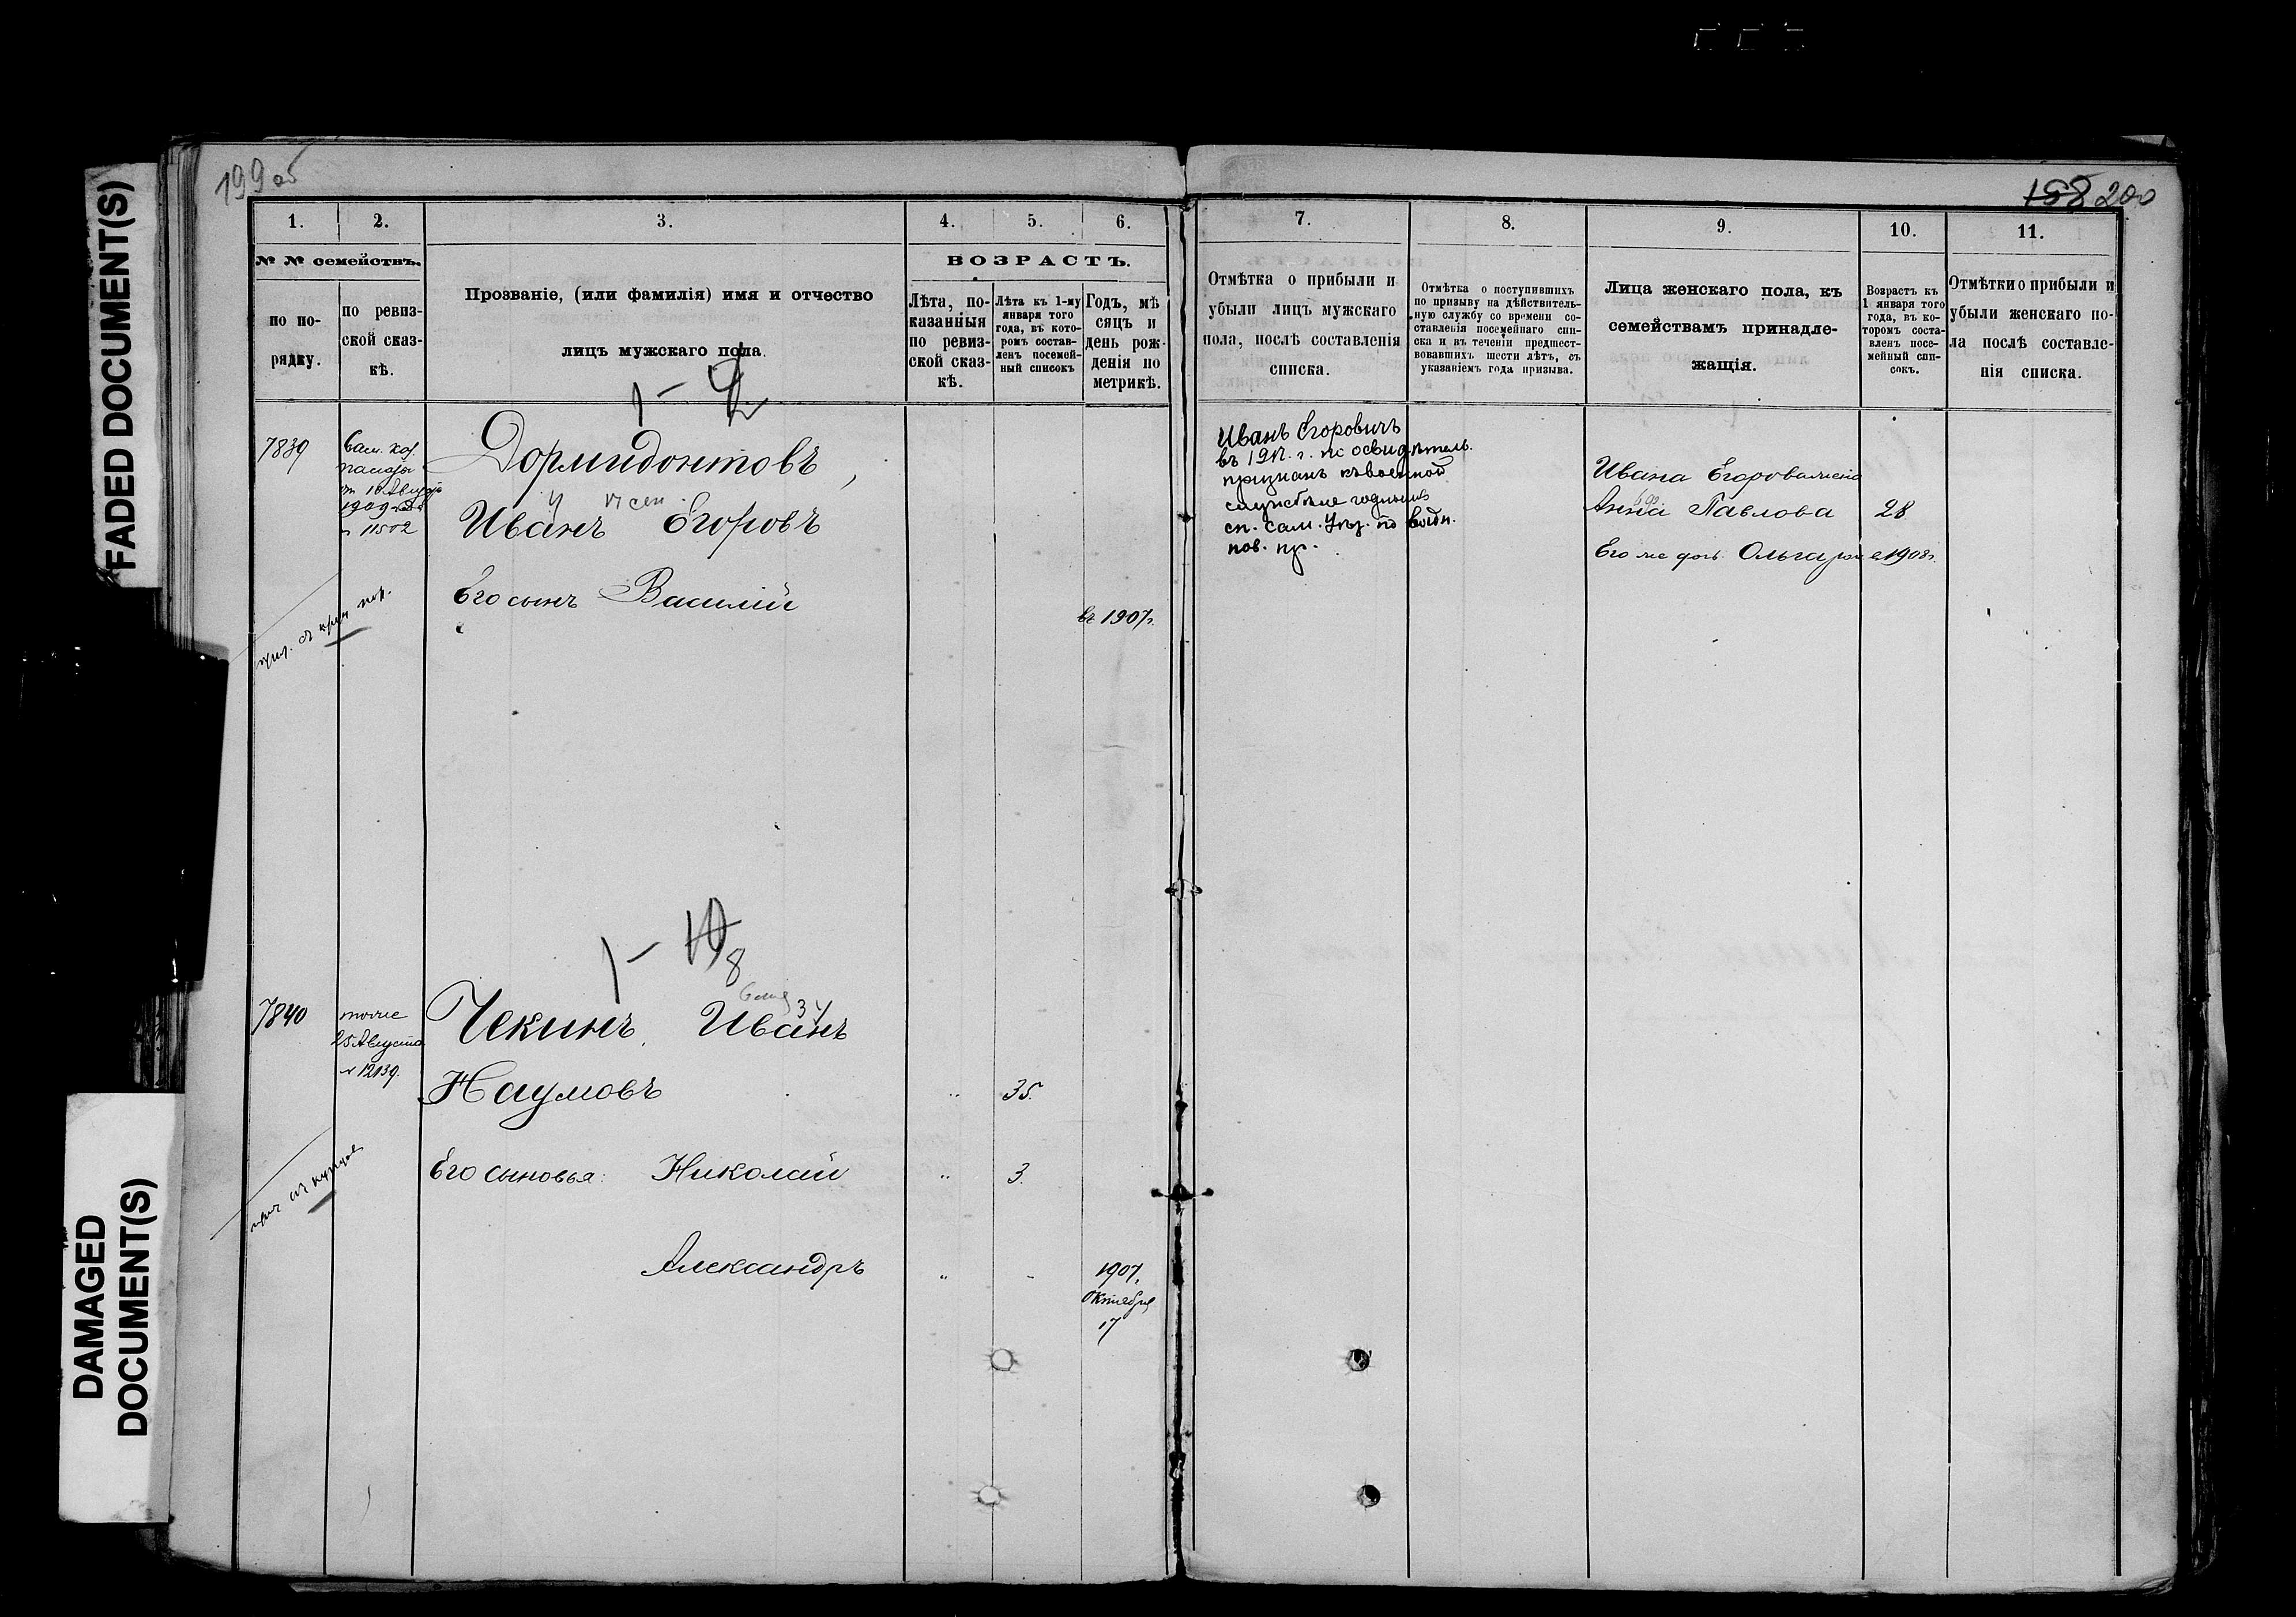 FADED DOCUMENT(S)
DAMAGED
DOCUMENT(S)
199 об
1. 2. 3. 4. 5. 6.
№ № семействъ.
по по-
рядку.
по ревиз-
ской сказ-
кѣ.
Прозваніе, (или фамилія) имя и отчество
лицъ мужскаго пола.
ВОЗРАСТЪ.
Лѣта, по-
казанныя
по ревиз-
ской сказ-
кѣ.
Лѣта къ 1-му
января того
года, въ кото-
ромъ состав-
ленъ посемей-
ный списокъ
Годъ, мѣ
сяцъ и
день рож-
денія по
метрикѣ.
7839
Сам. каз.
палаты
1909
11502
1 -
Дормидонтовъ,
Иванъ Егоровъ
Его сынъ Василій
въ 1907г.
1 - 8
7840
тоже
25 Августа
№ 12139.
Чекинъ, Иванъ
34
Наумовъ
35.
Его сыновья: Николай
3.
Александръ
1907,
Октября
17
158 200
7. 8. 9. 10. 11.
Отмѣтка о прибыли и
убыли лицъ мужскаго
пола, послѣ составленія
списка.
Отмѣтка о поступившихъ
по призыву на дѣйствитель-
ную службу со времени со-
ставленія посемейнаго спи-
ска и въ теченіи предшест-
вовавшихъ шести лѣтъ, съ
указаніемъ года призыва.
Лица женскаго пола, къ
семействамъ принадле-
жащія.
Возрастъ къ
1 января того
года, въ ко-
торомъ соста-
вленъ посе-
мейный спи-
сокъ.
Отмѣтки о прибыли и
убыли женскаго по-
ла послѣ составле-
нія списка.
Иванъ Егоровичъ
въ г. по освидѣтель.
признанъ къ военной
службѣ годнымъ
сп. Сам. Уѣз. по воин.
пов. пр.
Ивана Егорова жена
Анна Павлова 28
Его же дочь Ольга 1908г.